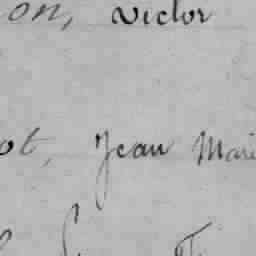 on, Victor
ot, Jean Mari